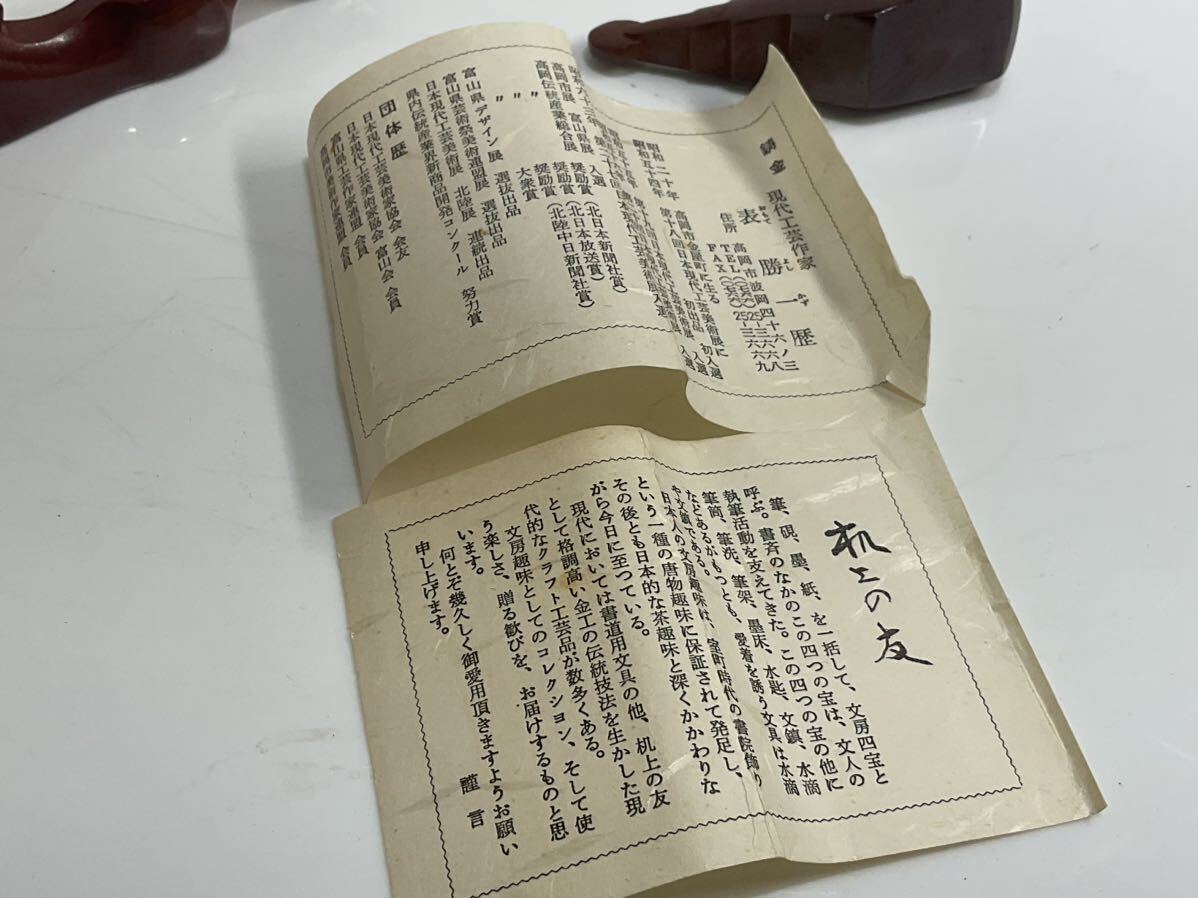 鋳金 現代工芸作家
表勝一歴
おもて よし かず
住所 高岡市波岡四十六ノ三
TEL
FAX
昭和二十年 高岡市金屋町に生る
昭和五十四年 第十八回日本現代工芸美術展に 初入選
昭和六十三年
高岡市展 富山県展 入選
高岡伝統産業総合展 奨励賞(北日本新聞社賞)
〃 奨励賞(北日本放送賞)
〃 奨励賞(北陸中日新聞社賞)
〃 大衆賞
富山県デザイン展 選抜出品
富山県芸術祭美術連盟展 選抜出品
日本現代工芸美術展 北陸展 連続出品
県内伝統産業界新商品開発コンクール 努力賞
団体歴
日本現代工芸美術家協会 会友
日本現代工芸美術家協会 富山会 会員
富山県工芸作家連盟 会員
机上の友
筆、硯、墨、紙、を一括して、文房四宝と
呼ぶ。書斉のなかのこの四つの宝は、文人の
執筆活動を支えてきた。この四つの宝の他に
筆筒、筆洗、筆架、墨床、水匙、文鎮、水滴
などあるがもつとも、愛着を誘う文具は水滴
や文鎮である。
日本人の文房趣味は、室町時代の書院飾り
という一種の唐物趣味に保証されて発足し、
その後とも日本的な茶趣味と深くかかわりな
がら今日に至つている。
現代においては書道用文具の他、机上の友
として格調高い金工の伝統技法を生かした現
代的なクラフト工芸品が数多くある。
文房趣味としてのコレクション、そして使
う楽しさ、贈る歓びを、お届けするものと思
います。
何とぞ幾久しく御愛用頂きますようお願い
申し上げます。
謹言